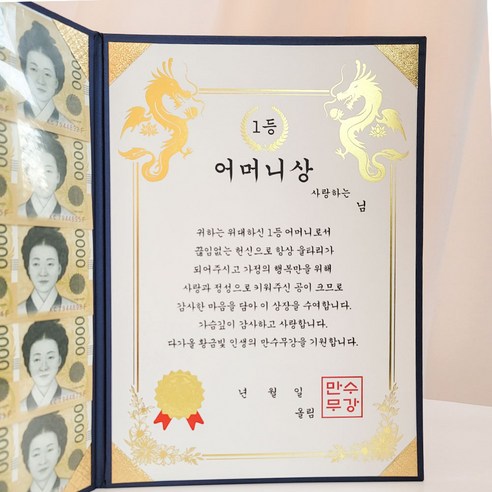 1등
어머니상
사랑하는
님
귀하는 위대하신 1등 어머니로서
끊임없는 헌신으로 항상 울타리가
되어주시고 가정의 행복만을 위해
사랑과 정성으로 키워주신 공이 크므로
감사한 마음을 담아 이 상장을 수여합니다.
가슴깊이 감사하고 사랑합니다.
다가올 황금빛 인생의 만수무강을 기원합니다.
년 월 일
올림
만수
무강